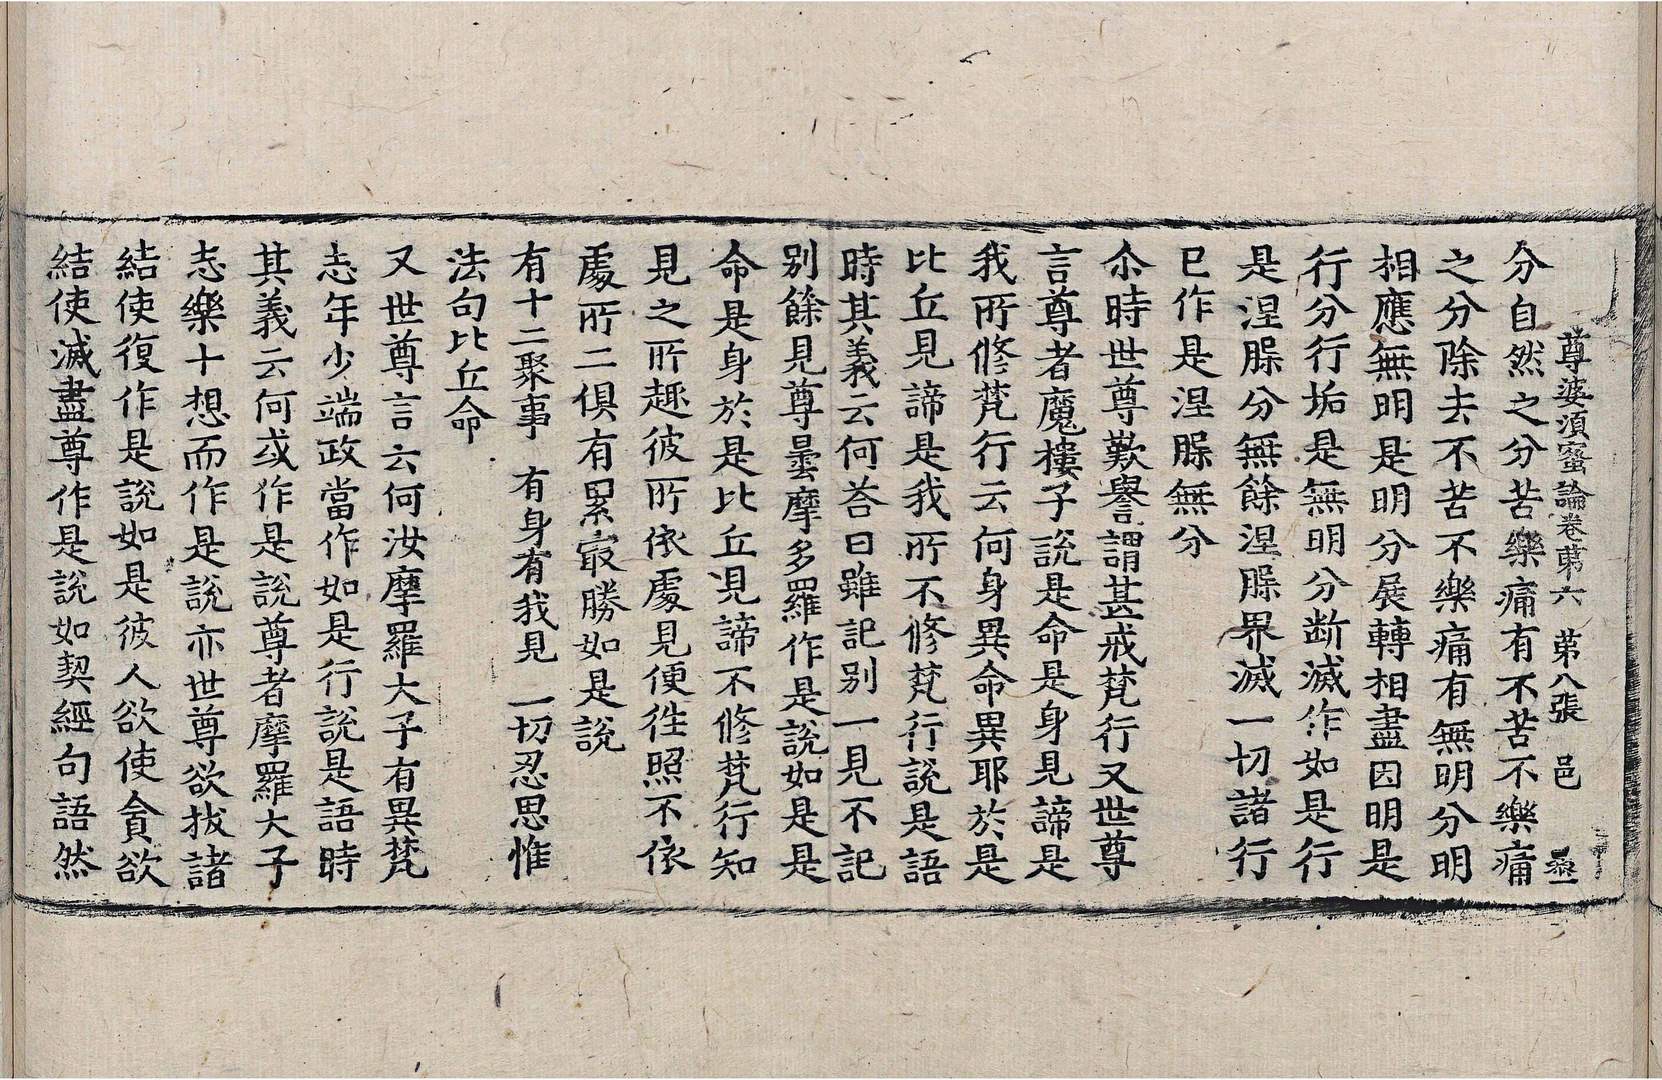 尊婆須蜜論卷苐六　苐八張　邑
分自然之分苦樂痛有不苦不樂痛
之分除去不苦不樂痛有無明分明
相應無明是明分展轉相盡因明是
行分行垢是無明分断滅作如是行
是涅䏶分無餘涅䏶界滅一切諸行
已作是涅䏶無分
尒時世尊歎譽謂甚戒梵行又世尊
言尊者魔樓子說是命是身見諦是
我所修梵行云何身異命異耶於是
比丘見諦是我所不修梵行說是語
時其義云何荅曰雖記別一見不記
別餘見尊曇摩多羅作是說如是是
命是身於是比丘見諦不修梵行知
見之所趣彼所依處見便徃照不依
處所二俱有累㝡勝如是說
有十二聚事　有身有我見　一切忍思惟
法句比丘命
又世尊言云何汝摩羅大子有異梵
志年少端政當作如是行說是語時
其義云何或作是說尊者摩羅大子
志樂十想而作是說亦世尊欲拔諸
結使復作是說如是彼人欲使貪欲
結使滅盡尊作是說如契經句語然